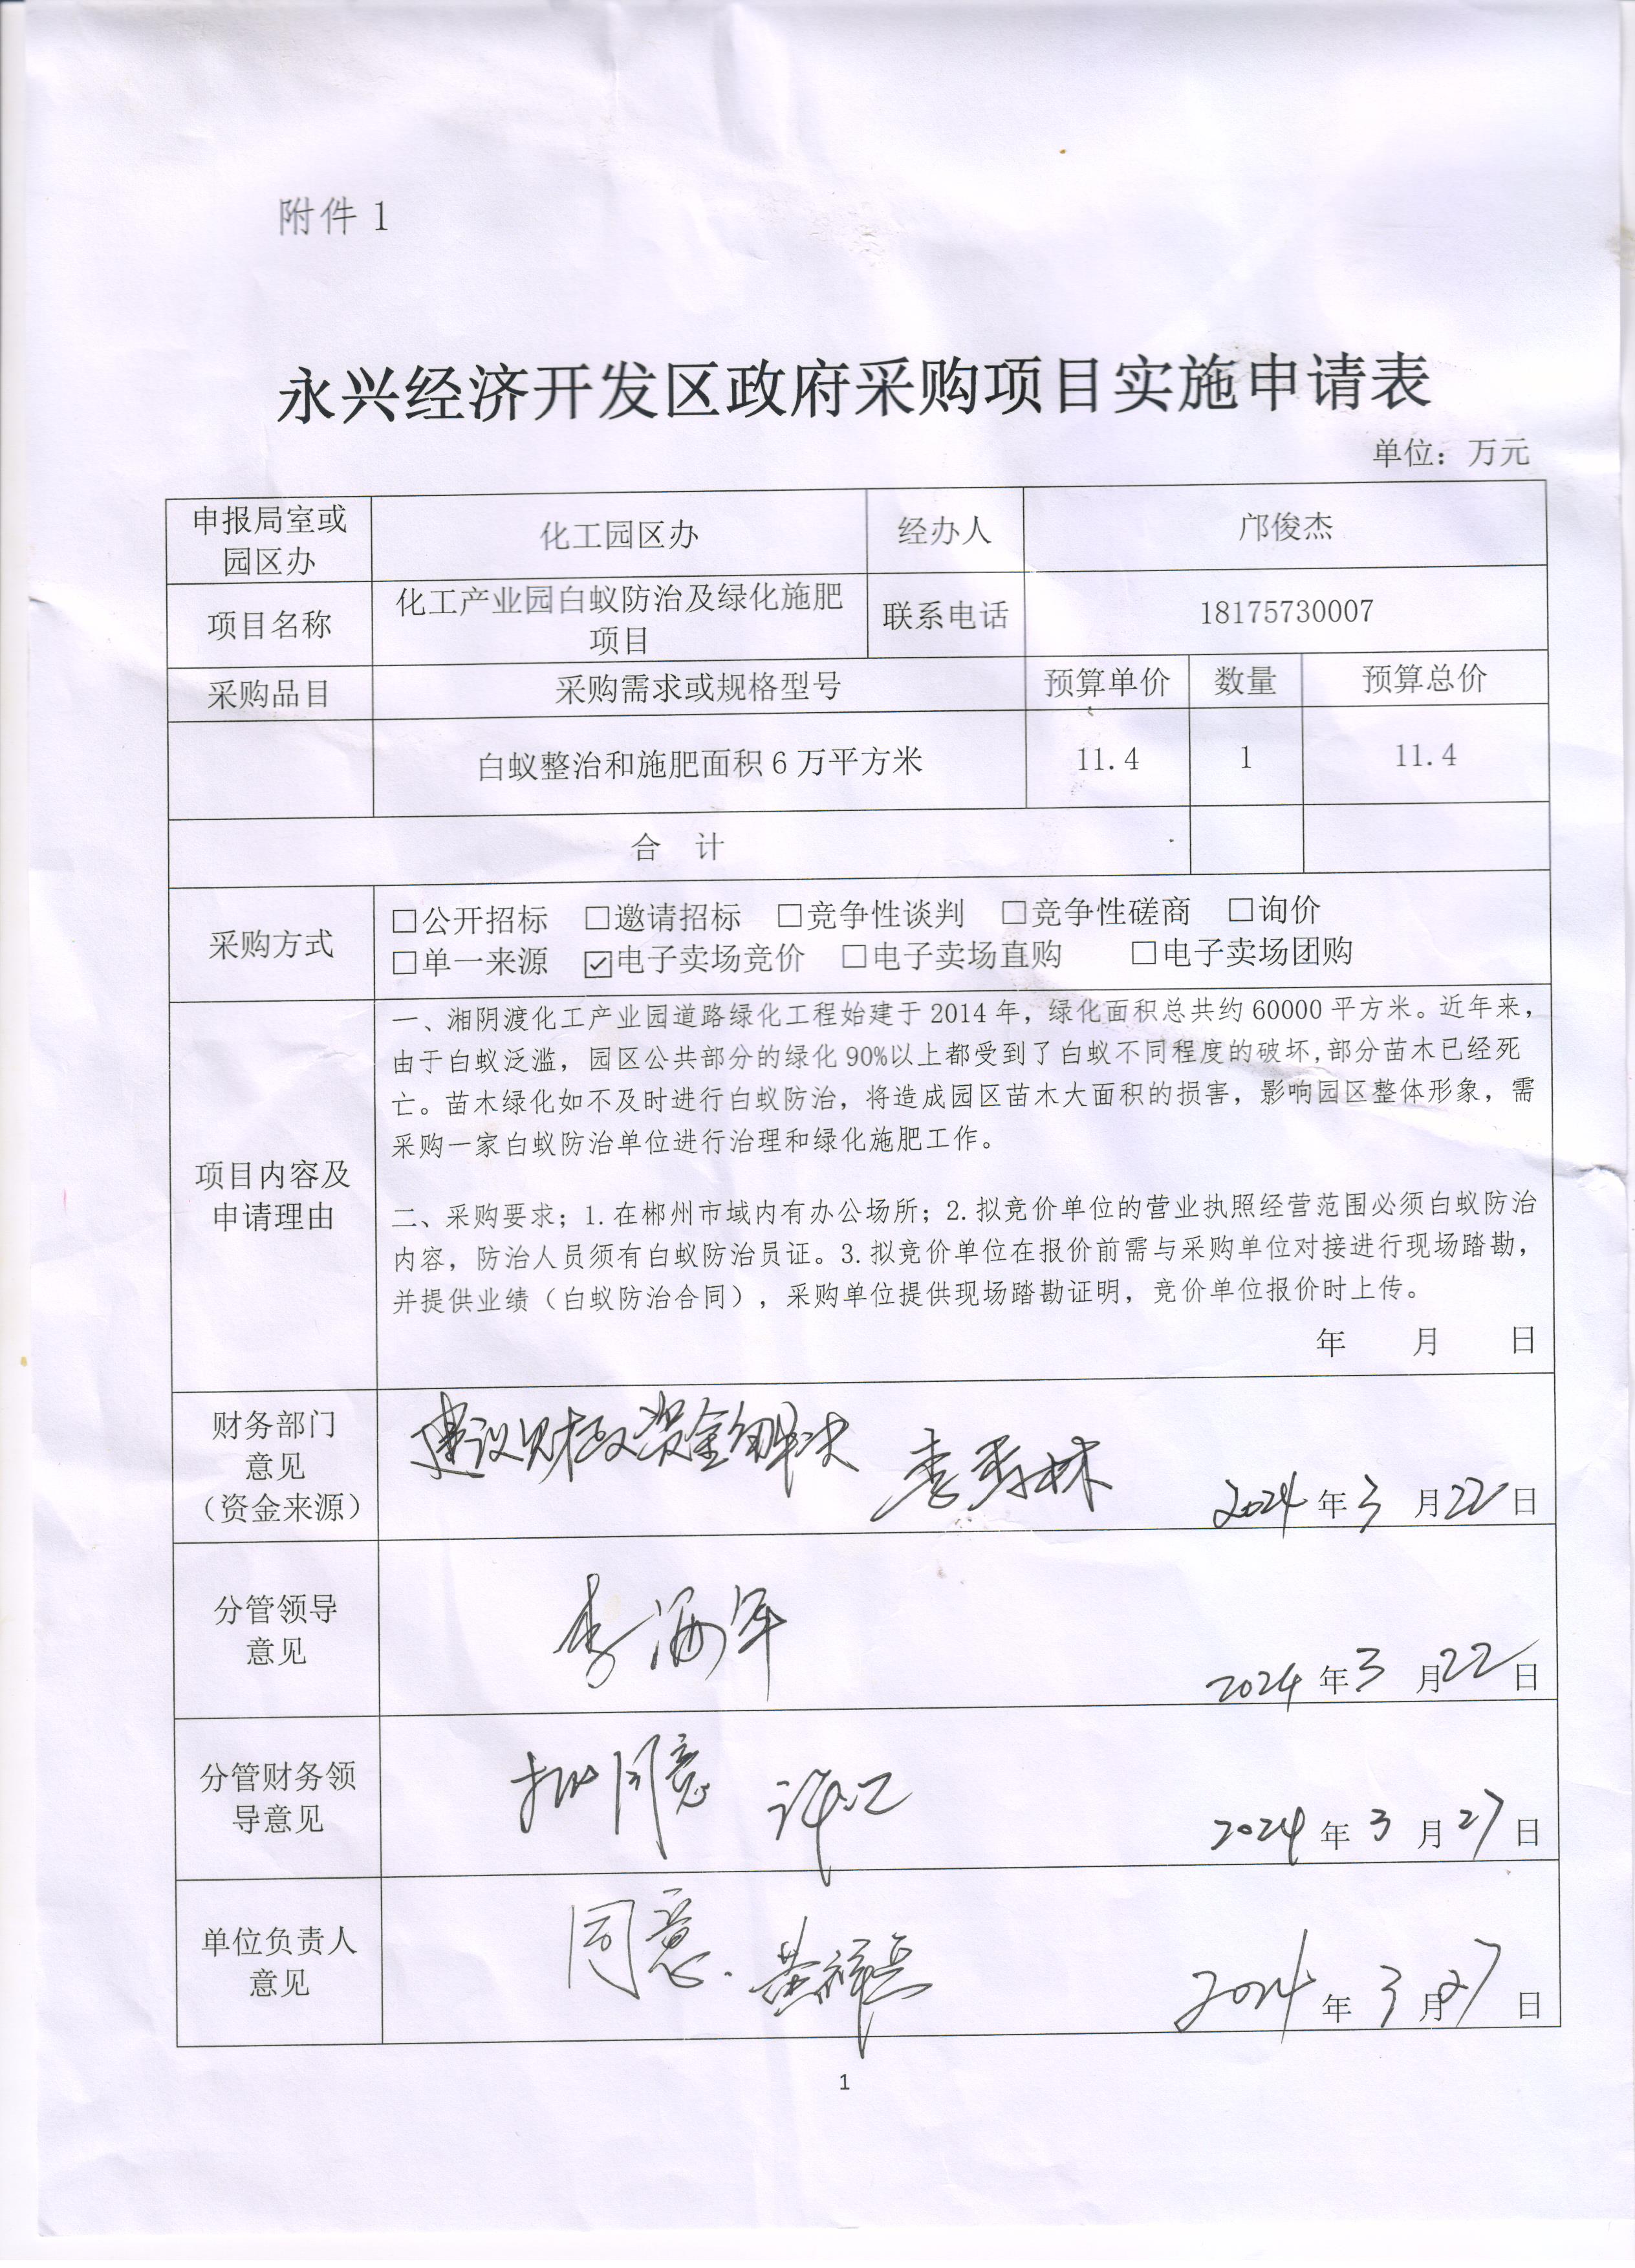 附件 1
永兴经济开发区政府采购项目实施申请表
单位：万元
申报局室或
园区办
化工园区办
经办人
邝俊杰
项目名称
化工产业园白蚁防治及绿化施肥
项目
联系电话
18175730007
采购品目
采购需求或规格型号
预算单价
数量
预算总价
白蚁整治和施肥面积 6 万平方米
11.4
1
11.4
合 计
采购方式
☐公开招标 ☐邀请招标 ☐竞争性谈判 ☐竞争性磋商 ☐询价
☐单一来源 ☑电子卖场竞价 ☐电子卖场直购 ☐电子卖场团购
项目内容及
申请理由
一、湘阴渡化工产业园道路绿化工程始建于 2014 年，绿化面积总共约 60000 平方米。近年来，
由于白蚁泛滥，园区公共部分的绿化 90%以上都受到了白蚁不同程度的破坏,部分苗木已经死
亡。苗木绿化如不及时进行白蚁防治，将造成园区苗木大面积的损害，影响园区整体形象，需
采购一家白蚁防治单位进行治理和绿化施肥工作。
二、采购要求；1.在郴州市域内有办公场所；2.拟竞价单位的营业执照经营范围必须白蚁防治
内容，防治人员须有白蚁防治员证。3.拟竞价单位在报价前需与采购单位对接进行现场踏勘，
并提供业绩（白蚁防治合同），采购单位提供现场踏勘证明，竞价单位报价时上传。
年 月 日
财务部门
意见
（资金来源）
建议财政资金解决
2024 年 3 月 22 日
分管领导
意见
李海军
2024 年 3 月 22 日
分管财务领
导意见
拟同意
2024 年 3 月 27 日
单位负责人
意见
同意.
2024 年 3 月 27 日
1